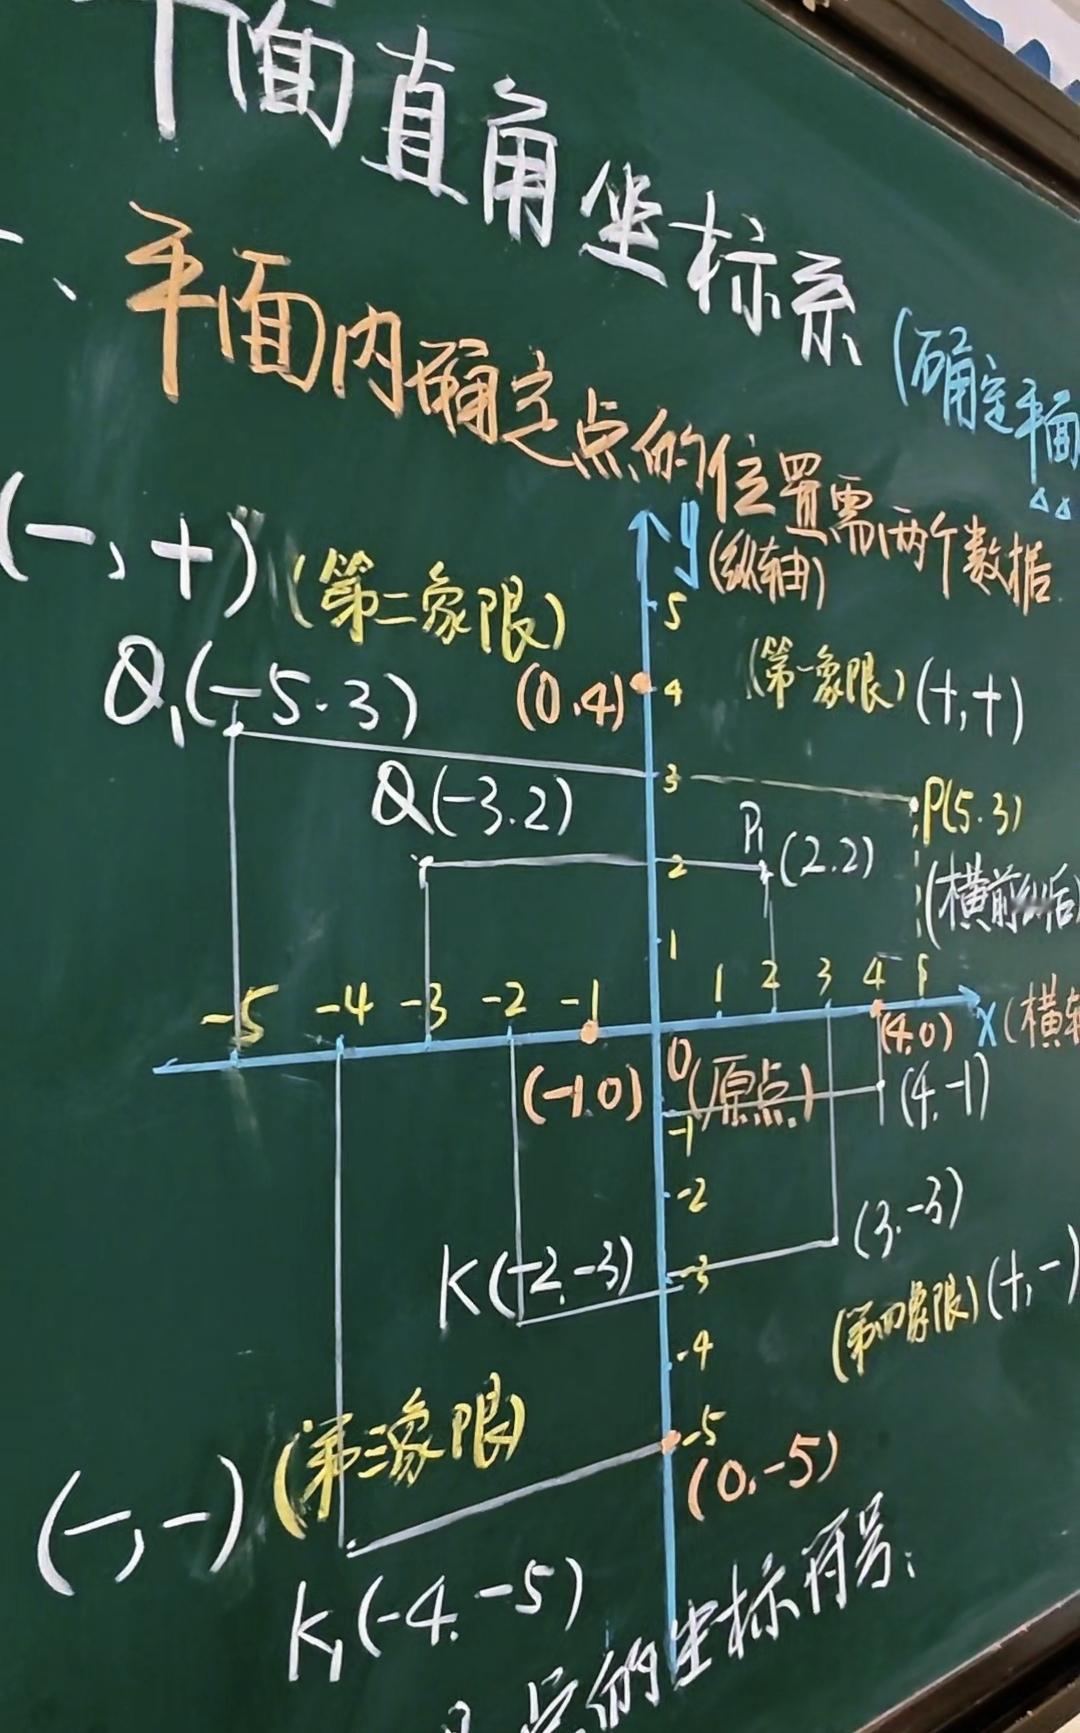 平面直角坐标系
一、平面内确定点的位置需两个数据
(确定平面
y
(纵轴)
(-,+)
(第二象限)
(第一象限) (+,+)
5
Q₁(-5.3)
(0.4)
4
3
Q(-3.2)
P(5.3)
P₁(2.2)
2
(横前纵后)
1
-5 -4 -3 -2 -1
1 2 3 4 5
x(横轴
0(原点)
(-1.0)
(4.0)
(4.-1)
-1
-2
K(-2.-3)
-3
(3.-3)
(第四象限)(+,-)
-4
(第三象限)
-5
(0.-5)
(-,-)
K₁(-4.-5)
点的坐标符号: